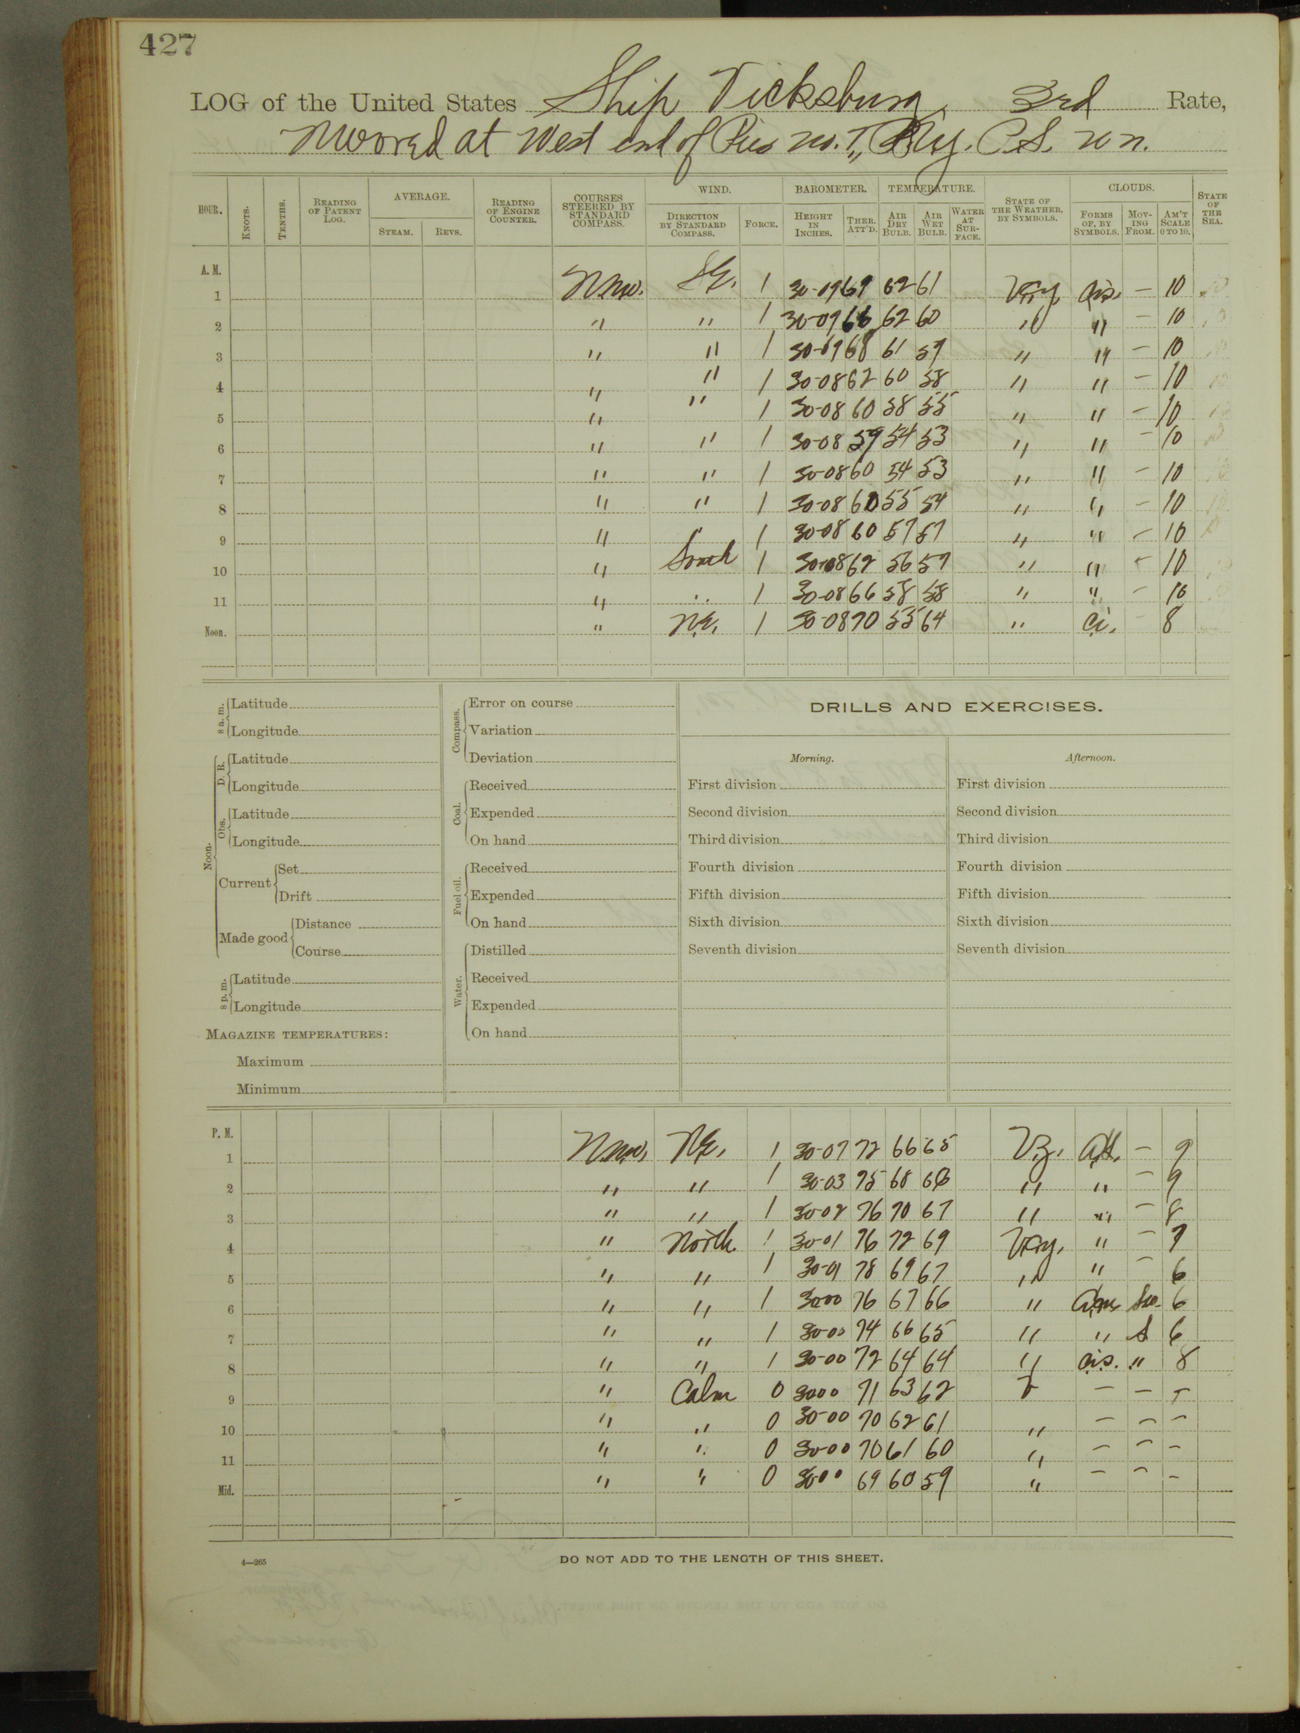 427
LOG of the United States Ship Vicksburg, 3rd Rate,
Moored at West end of Pier No. 7,
HOUR. KNOTS. TENTHS. READING OF PATENT LOG. AVERAGE. STEAM. REVS. READING OF ENGINE COUNTER. COURSES STEERED BY STANDARD COMPASS. WIND. DIRECTION BY STANDARD COMPASS. FORCE. BAROMETER. HEIGHT IN INCHES. THER. ATT'D. TEMPERATURE. AIR DRY BULB. AIR WET BULB. WATER AT SURFACE. STATE OF THE WEATHER, BY SYMBOLS. CLOUDS. FORMS OF, BY SYMBOLS. MOVING FROM. AM'T SCALE 0 TO 10. STATE OF THE SEA.
A. M.
1 NNW. SE. 1 30-09 69 62 61 cis. — 10
2 " " 1 30-09 66 62 60 " " — 10
3 " " 1 30-09 68 61 59 " " — 10
4 " " 1 30-08 62 60 58 " " — 10
5 " " 1 30-08 60 58 55 " " — 10
6 " " 1 30-08 59 54 53 " " — 10
7 " " 1 30-08 60 54 53 " " — 10
8 " " 1 30-08 60 55 54 " " — 10
9 " " 1 30-08 60 57 57 " " — 10
10 " South 1 30-08 62 56 57 " " — 10
11 " " 1 30-08 66 58 58 " " — 10
Noon. " NE. 1 30-08 70 55 64 " ci. — 8
8 a. m. Latitude
Longitude
Noon. D. R. Latitude
Longitude
Obs. Latitude
Longitude
Current Set
Drift
Made good Distance
Course
8 p. m. Latitude
Longitude
MAGAZINE TEMPERATURES:
Maximum
Minimum
Compass. Error on course
Variation
Deviation
Coal. Received
Expended
On hand
Fuel oil. Received
Expended
On hand
Water. Distilled
Received
Expended
On hand
DRILLS AND EXERCISES.
Morning.
First division
Second division
Third division
Fourth division
Fifth division
Sixth division
Seventh division
Afternoon.
First division
Second division
Third division
Fourth division
Fifth division
Sixth division
Seventh division
P. M.
1 NNW. NE. 1 30-07 72 66 65 — 9
2 " " 1 30-03 75 68 66 " " — 9
3 " " 1 30-02 76 70 67 " " — 8
4 " North. 1 30-01 76 72 69 " — 7
5 " " 1 30-01 78 69 67 " " — 6
6 " " 1 3000 76 67 66 " 6
7 " " 1 30-00 74 66 65 " " S 6
8 " " 1 30-00 72 64 64 " cis. " 8
9 " Calm 0 3000 71 63 62 — — —
10 " " 0 30-00 70 62 61 " — — —
11 " " 0 30-00 70 61 60 " — — —
Mid. " " 0 3000 69 60 59 " — — —
4—265
DO NOT ADD TO THE LENGTH OF THIS SHEET.